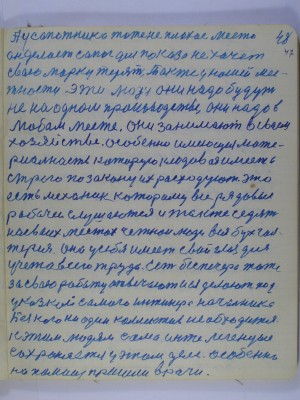 48
47
А у сапожника тоже не плохое место
он делает сапоги для показа не хочет
свою марку терять также у нашей ме-
стности эти люди они надо будут
не на одном производстве они надо в
любом месте. Они занимают в своем
хозяйстве. Особенно имеющих мате-
риальность которую кладовая имеет
строго по закону их расходуют это
есть механик которому все рядовые
рабочие слушаются и также сидят
на своих местах честной люди все бухгал-
терия. Она у себя имеет свой глаз для
учета всего труда. Есть диспетчера тоже
за свою работу отвечают и делают под
указкой самого инженера начальника
Без кого ни один коллектив не обходится
к этим людям сама жизнь легендою
сохраняется у этом деле. Особенно
на помощь пришли врачи.